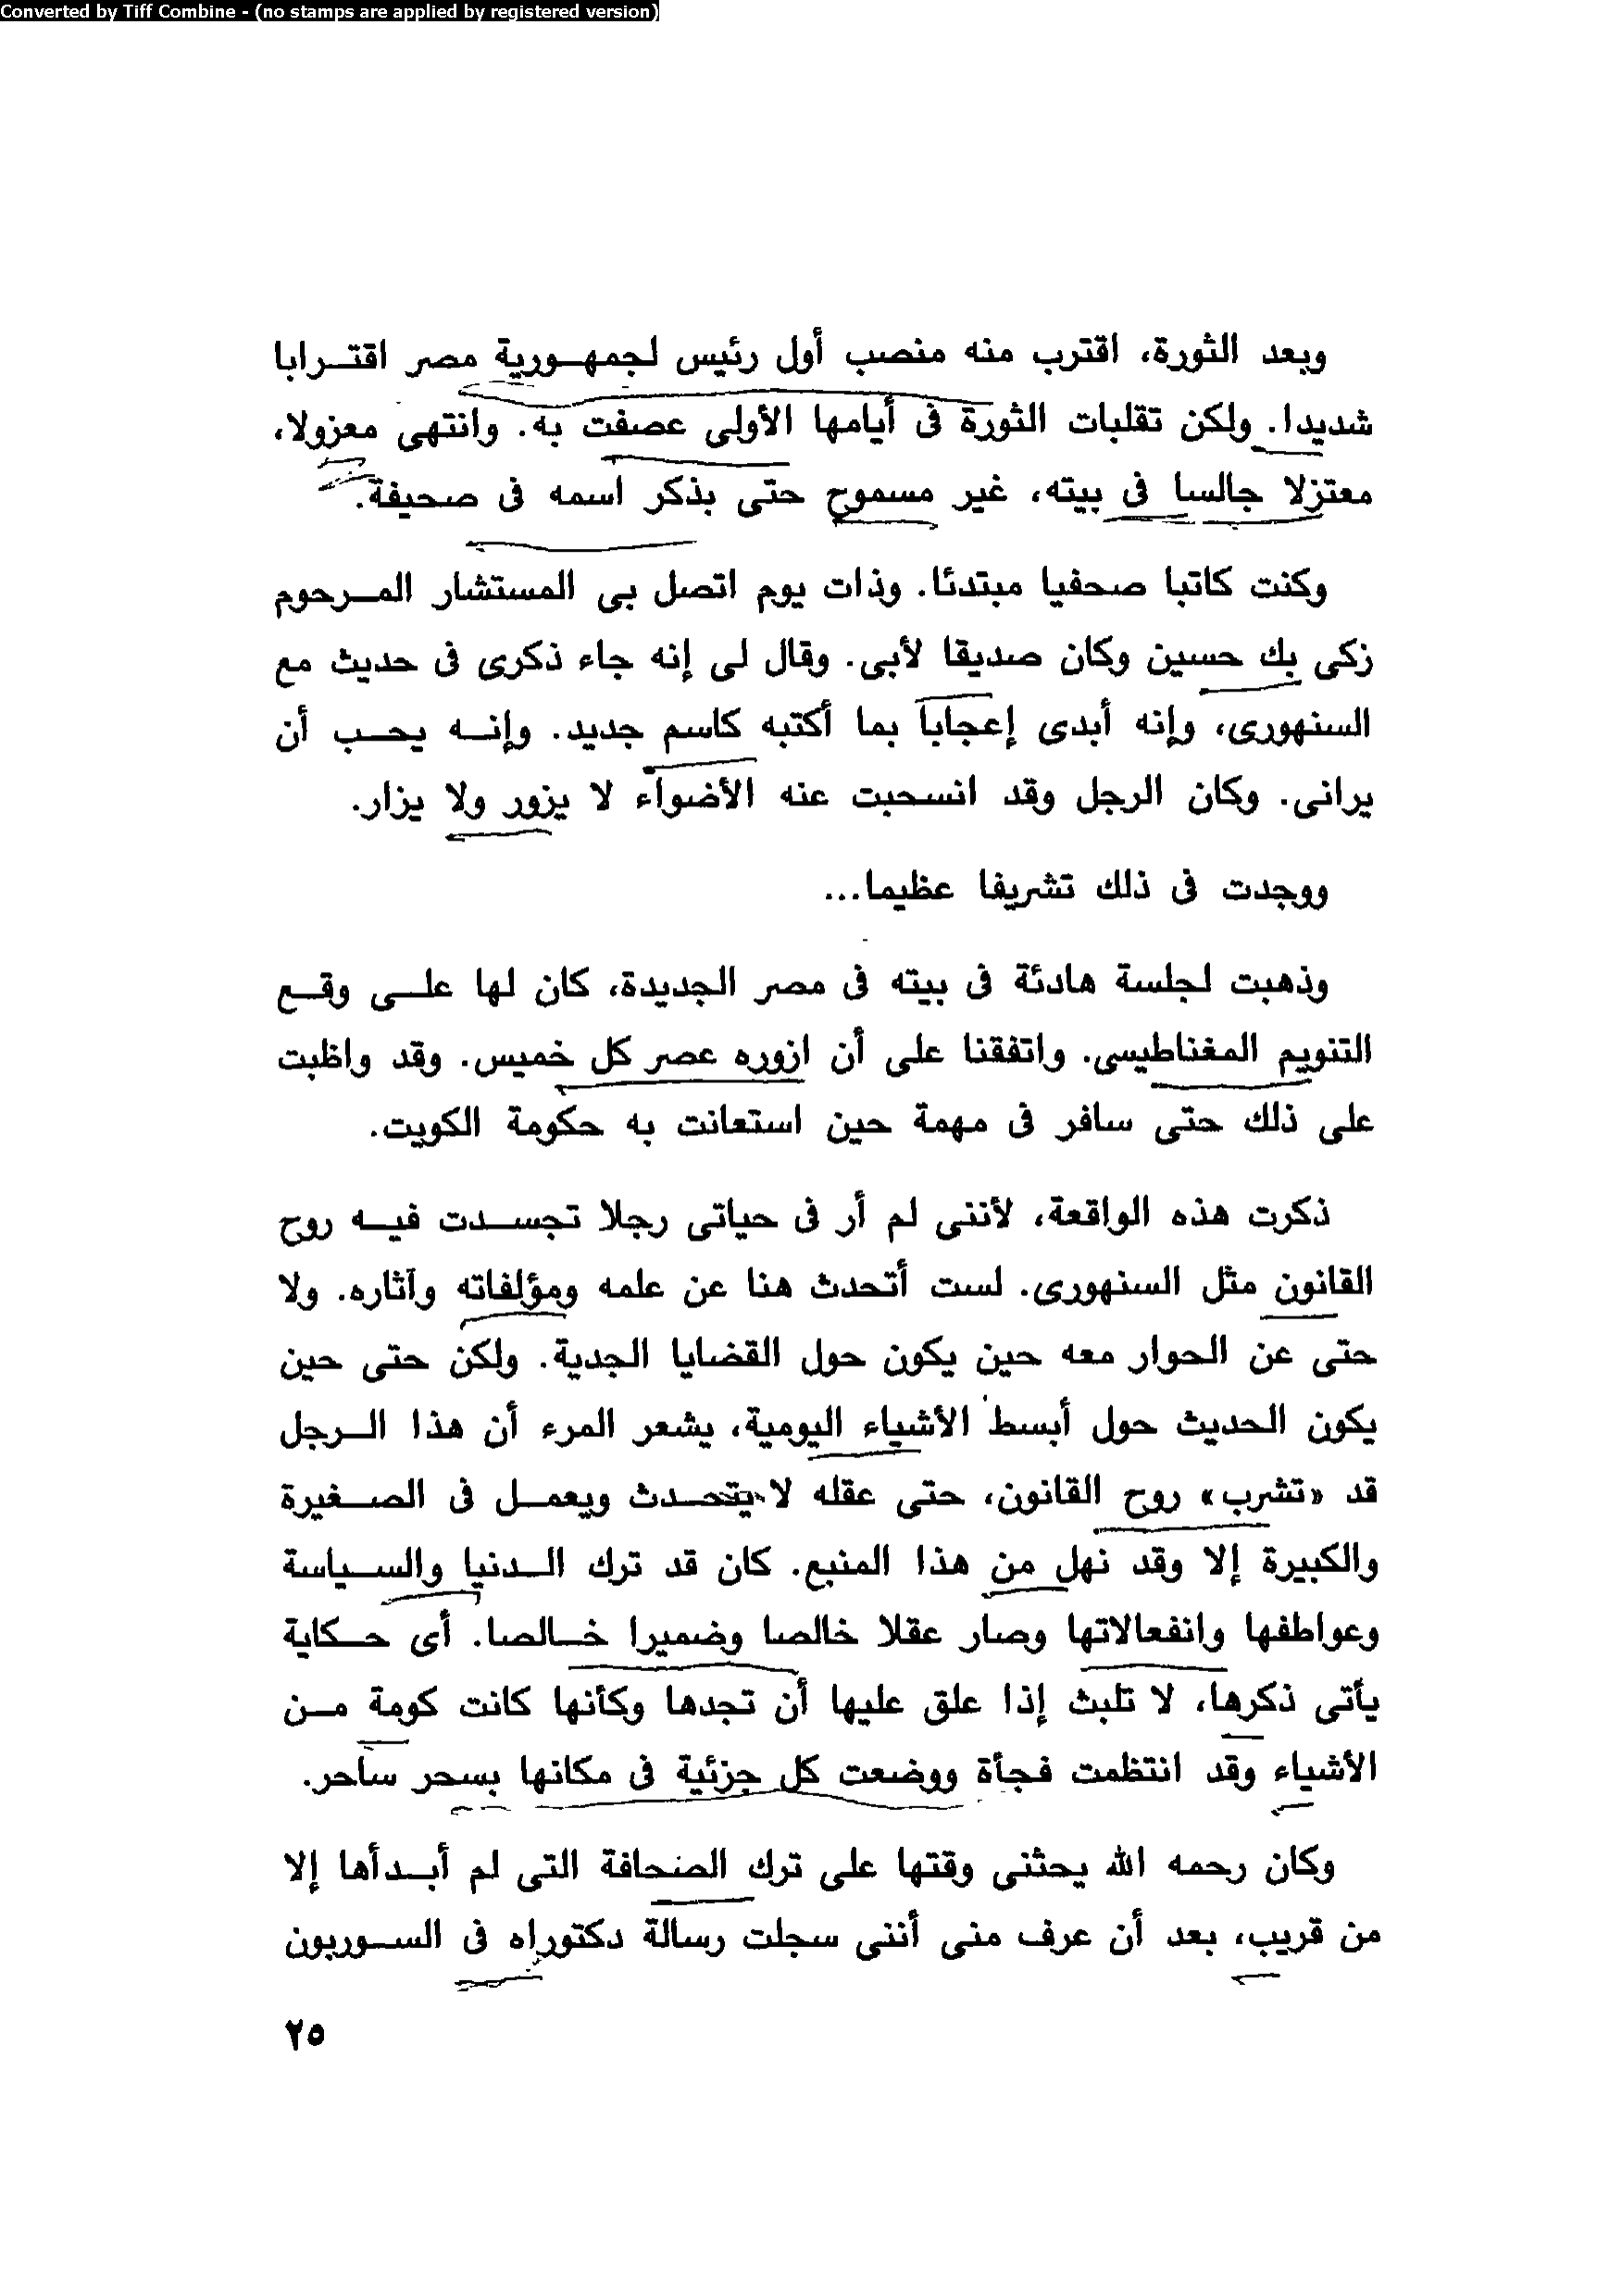 Converted by Tiff Combine - (no stamps are applied by registered version)
وبعد الثورة، اقترب منه منصب أول رئيس لجمهورية مصر اقترابا
شديدا. ولكن تقلبات الثورة فى أيامها الأولى عصفت به. وانتهى معزولا،
معتزلا جالسا فى بيته، غير مسموح حتى بذكر اسمه فى صحيفة.
وكنت كاتبا صحفيا مبتدئا. وذات يوم اتصل بى المستشار المرحوم
زكى بك حسين وكان صديقا لأبى. وقال لى إنه جاء ذكرى فى حديث مع
السنهورى، وإنه أبدى إعجابا بما أكتبه كاسم جديد. وإنه يحب أن
يرانى. وكان الرجل وقد انسحبت عنه الأضواء لا يزور ولا يزار.
ووجدت فى ذلك تشريفا عظيما...
وذهبت لجلسة هادئة فى بيته فى مصر الجديدة، كان لها على وقع
التنويم المغناطيسى. واتفقنا على أن ازوره عصر كل خميس. وقد واظبت
على ذلك حتى سافر فى مهمة حين استعانت به حكومة الكويت.
ذكرت هذه الواقعة، لأننى لم أر فى حياتى رجلا تجسدت فيه روح
القانون مثل السنهورى. لست أتحدث هنا عن علمه ومؤلفاته وآثاره. ولا
حتى عن الحوار معه حين يكون حول القضايا الجدية. ولكن حتى حين
يكون الحديث حول أبسط الأشياء اليومية، يشعر المرء أن هذا الرجل
قد «تشرب» روح القانون، حتى عقله لا يتحدث ويعمل فى الصغيرة
والكبيرة إلا وقد نهل من هذا المنبع. كان قد ترك الدنيا والسياسة
وعواطفها وانفعالاتها وصار عقلا خالصا وضميرا خالصا. أى حكاية
يأتى ذكرها، لا تلبث إذا علق عليها أن تجدها وكأنها كانت كومة من
الأشياء وقد انتظمت فجأة ووضعت كل جزئية فى مكانها بسحر ساحر.
وكان رحمه الله يحثنى وقتها على ترك الصحافة التى لم أبدأها إلا
من قريب، بعد أن عرف منى أننى سجلت رسالة دكتوراه فى السوربون
٢٥